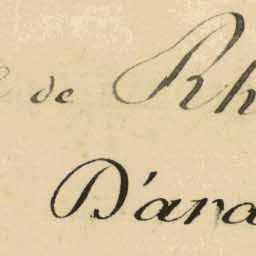 de Rh
D'ara